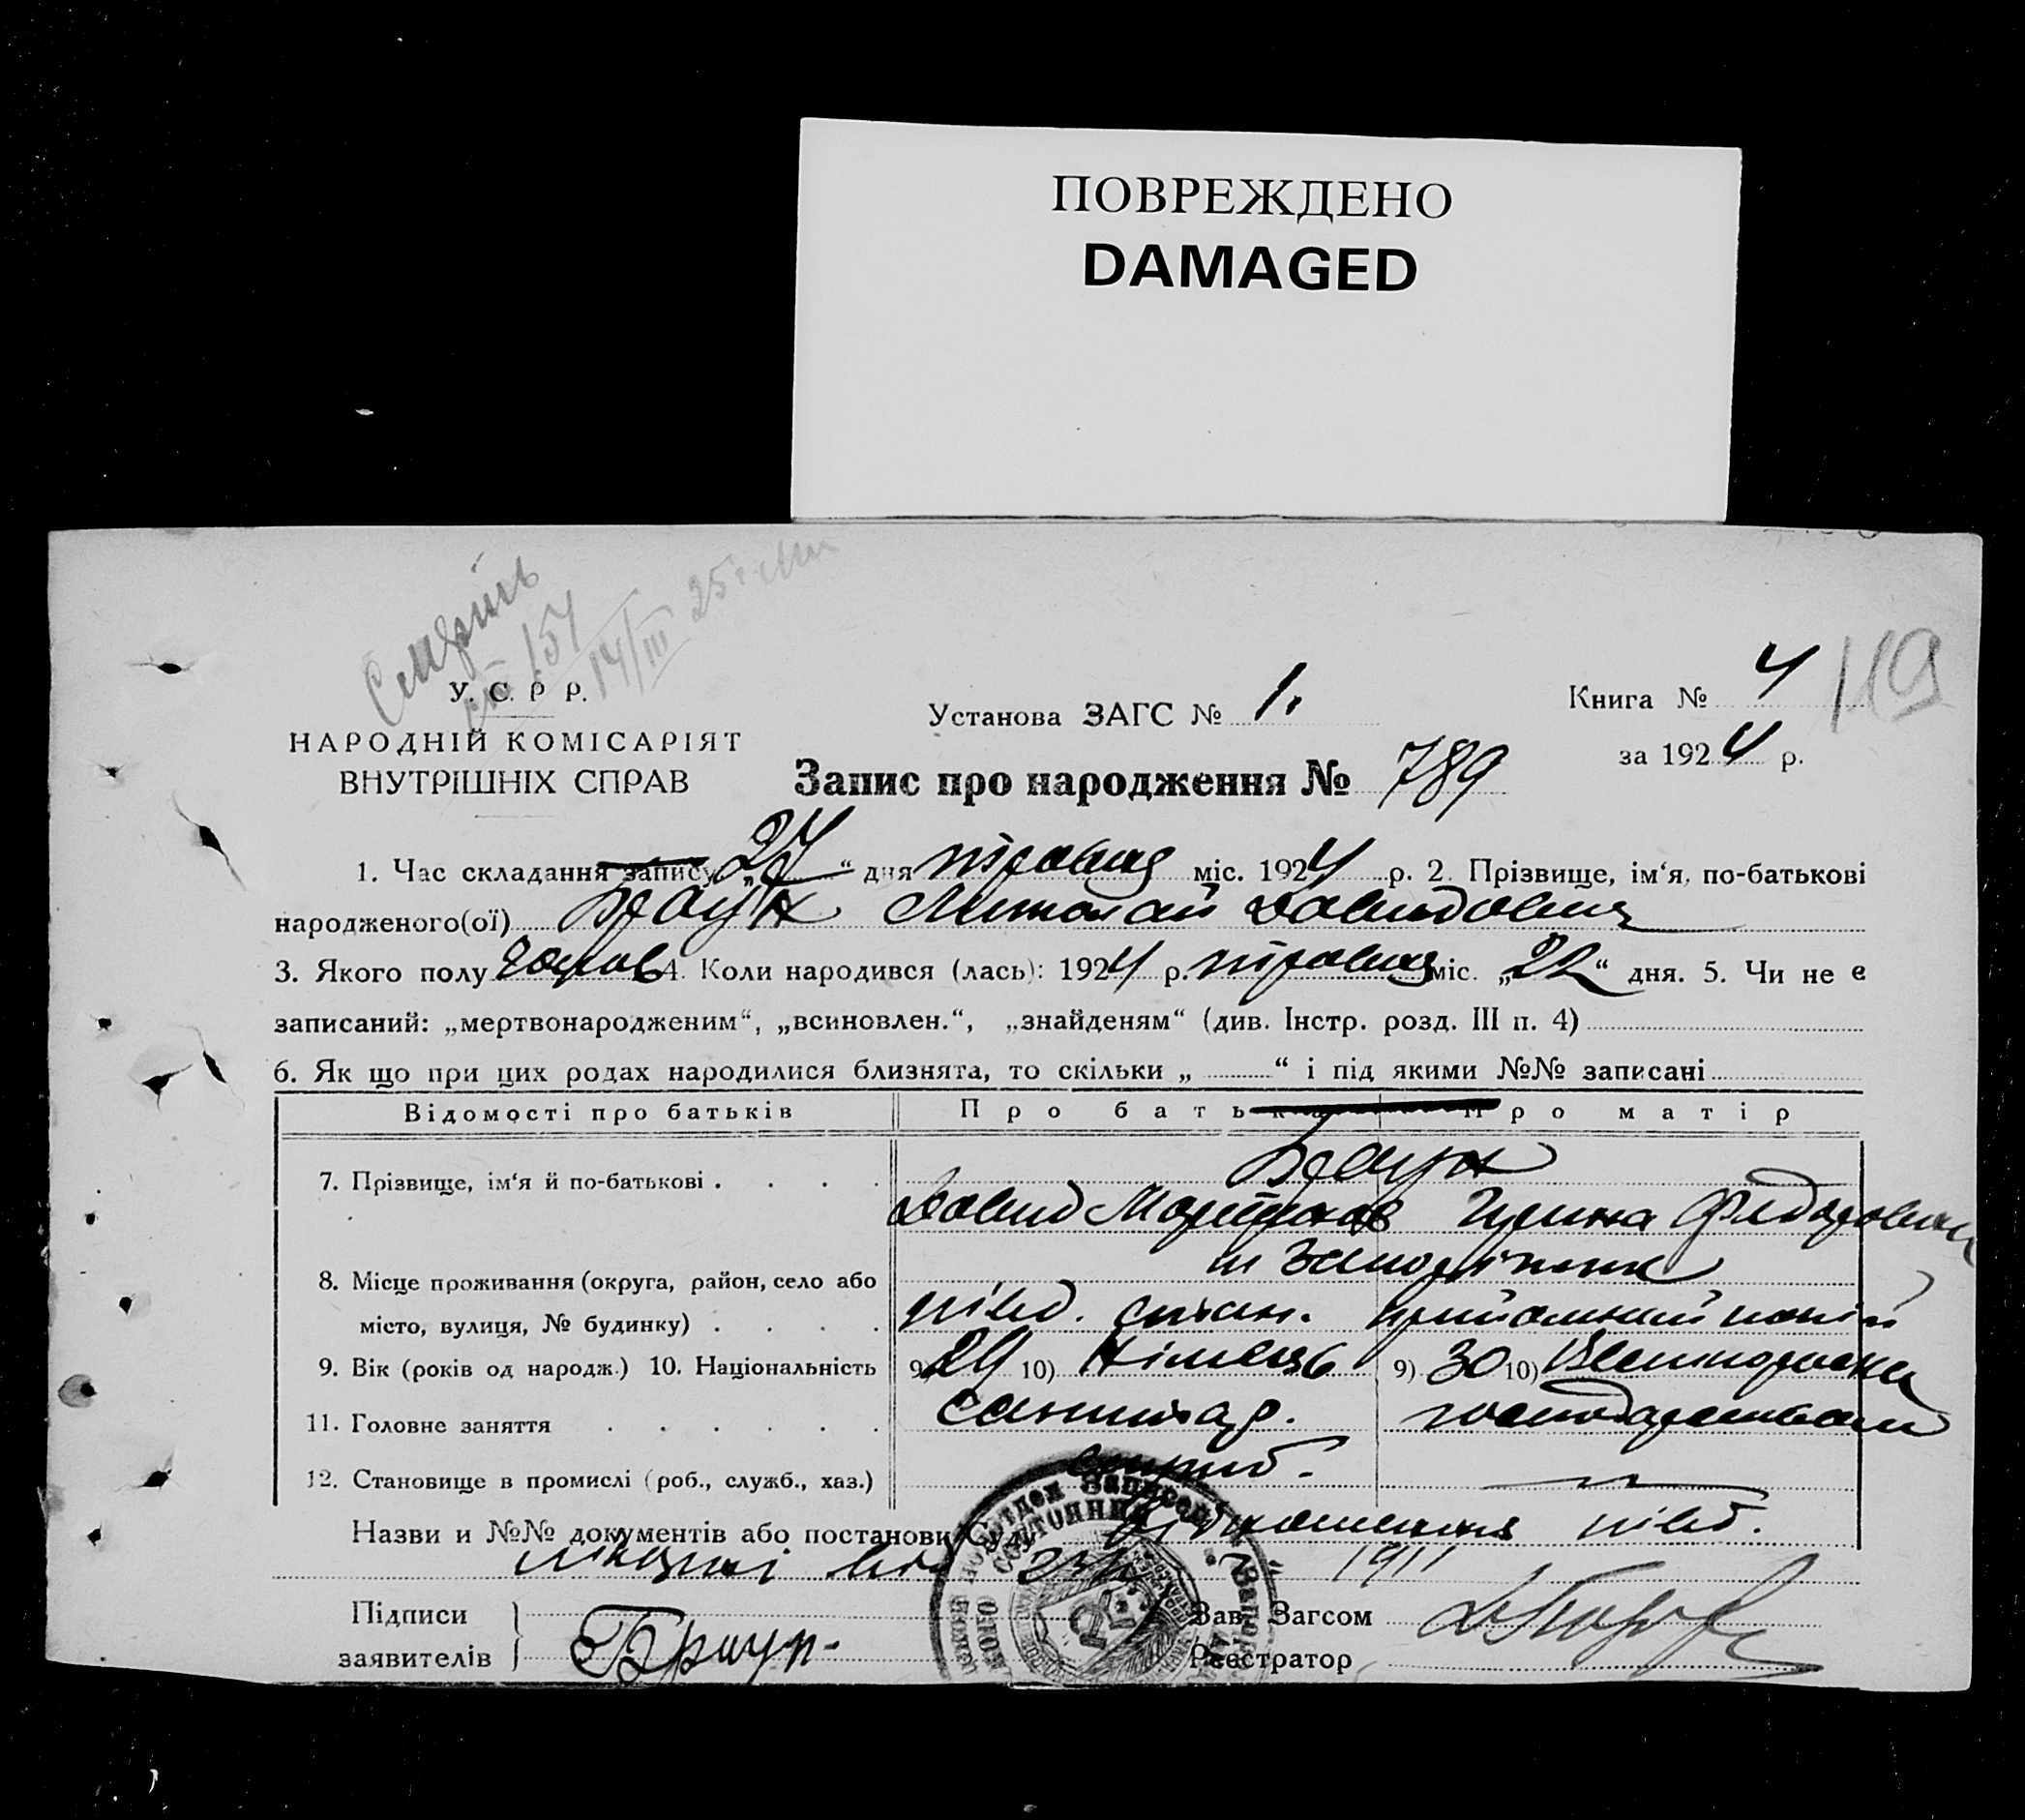 ПОВРЕЖДЕНО
DAMAGED
Смерть
№ 151
14/III 25
У. С. Р. Р.
НАРОДНІЙ КОМІСАРІЯТ
ВНУТРІШНІХ СПРАВ
Установа ЗАГС № 1.
Книга № 4
119
за 1924 р.
Запис про народження № 789
1. Час складання запису „27“ дня травня міс. 1924 р. 2. Прізвище, ім‘я, по-батькові
народженого(ої) Браун Миколай Давидович
3. Якого полу чолов 4. Коли народився (лась): 1924 р. травня міс. „22“ дня. 5. Чи не є
записаний: „мертвонародженим“, „всиновлен.“, „знайденям“ (див. Інстр. розд. III п. 4)
6. Як що при цих родах народилися близнята, то скільки „ “ і під якими №№ записані
Відомості про батьків Про батька Про матір
7. Прізвище, ім‘я й по-батькові . . . . Браун
Давид Мартинов Ірина Федоровна
8. Місце проживання (округа, район, село або м Запоріжжя
місто, вулиця, № будинку) . . . . півд. стан. прийомний покій
9. Вік (років од народж.) 10. Національність 9) 29 10) Німець 9) 30 10) Великороска
11. Головне заняття . . . . . . санитар. господарством
12. Становище в промислі (роб., служб., хаз.) служб.
Назви и №№ документів або постанови Суду Відношення півд.
лікарні від 1911
Підписи
заявителів Браун.
Зав. Загсом
Реєстратор